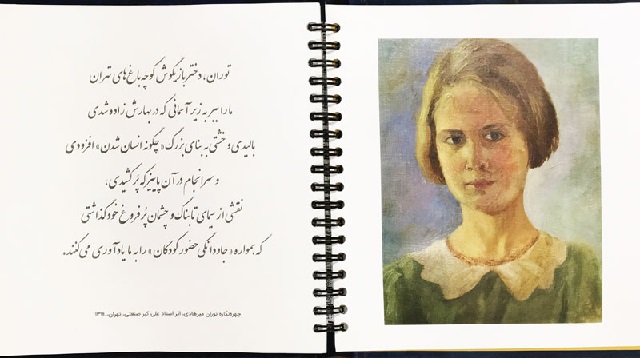 توران، دختر بازیگوش کوچه‌باغ‌های تهران
ما را ببر به زیر آسمانی که در بهارش زاده شدی
بالیدی و خشتی به بنای بزرگ «چگونه انسان شدن» افزودی
و سرانجام در آن پاییز که پر کشیدی،
نقشی از سیمای تابناک و چشمان پر فروغ خود گذاشتی
که همواره «جاودانگی حضور کودکان» را به ما یادآوری می‌کنند.
چهره‌نگاره توران میرهادی، اثر استاد علی اکبر صنعتی، تهران،